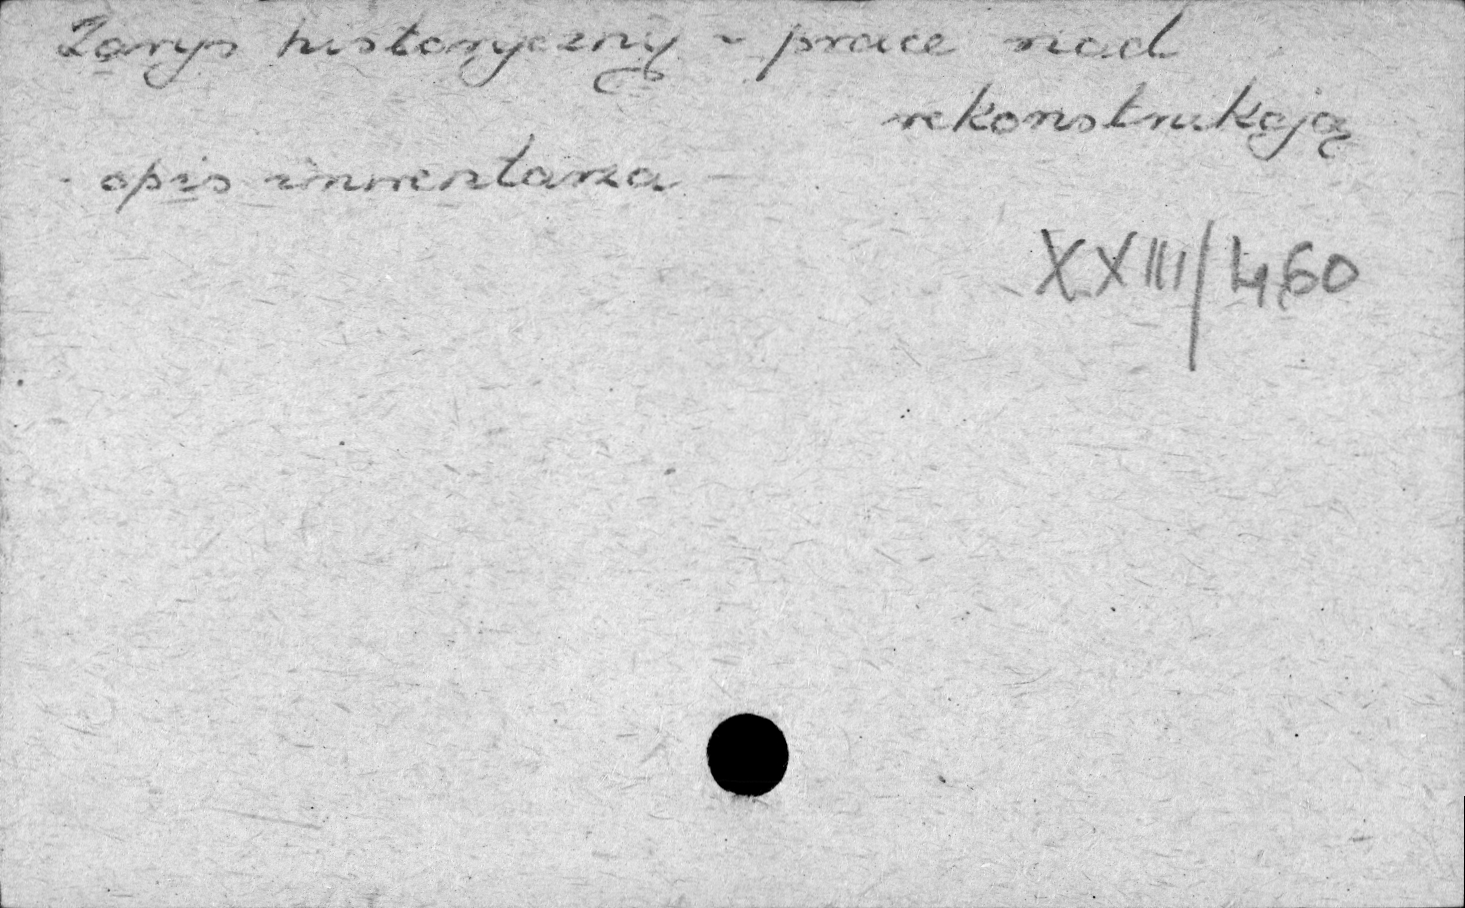 Zarys historyczny - prace nad
rekonstrukcją
- opis inwentarza -
XXIII/460